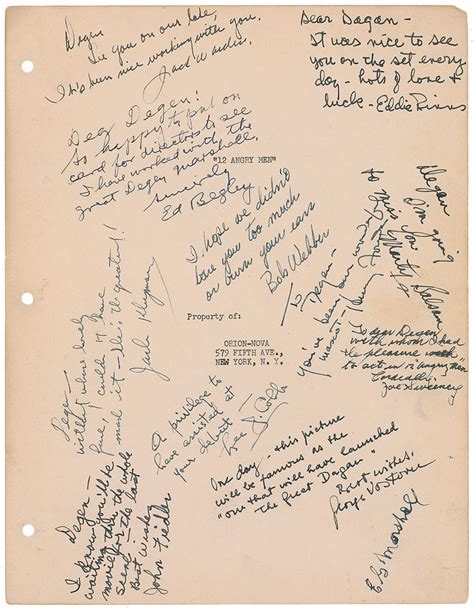 Degen
See you on our late,
It's been nice working with you.
Jack Warden.
Dear Dagan –
It was nice to see
you on the set every
day – lots of love &
luck – Eddie Binns
Dear Degen!
So happy to put on
card for directors to see
I have worked with the
great Degen Marshall.
Sincerely
Ed Begley
"12 ANGRY MEN"
I hope we didn't
bore you too much
or burn your ears
Bob Webber
Degan
I'm going
to miss you
Marty Balsam
To Degan –
You've been our
mascot –
Property of:
ORION-NOVA
579 FIFTH AVE.,
NEW YORK, N.Y.
To dear Degen
with whom I had
the pleasure
to act in 12 angry men
Cordially,
Joe Sweeney
Degen –
could I have
said it – he's to quoted!
Jack Klugman
A privilege to
have assisted at
your debut
Lee J. Cobb
One day – this picture
will be famous as the
"one that will have launched
the Great Dagan"
Best wishes,
George Voskovec
Degen –
I know you'll be
waiting thru the whole
movie for the last
scene –
Best wishes
John Fiedler
E G Marshall